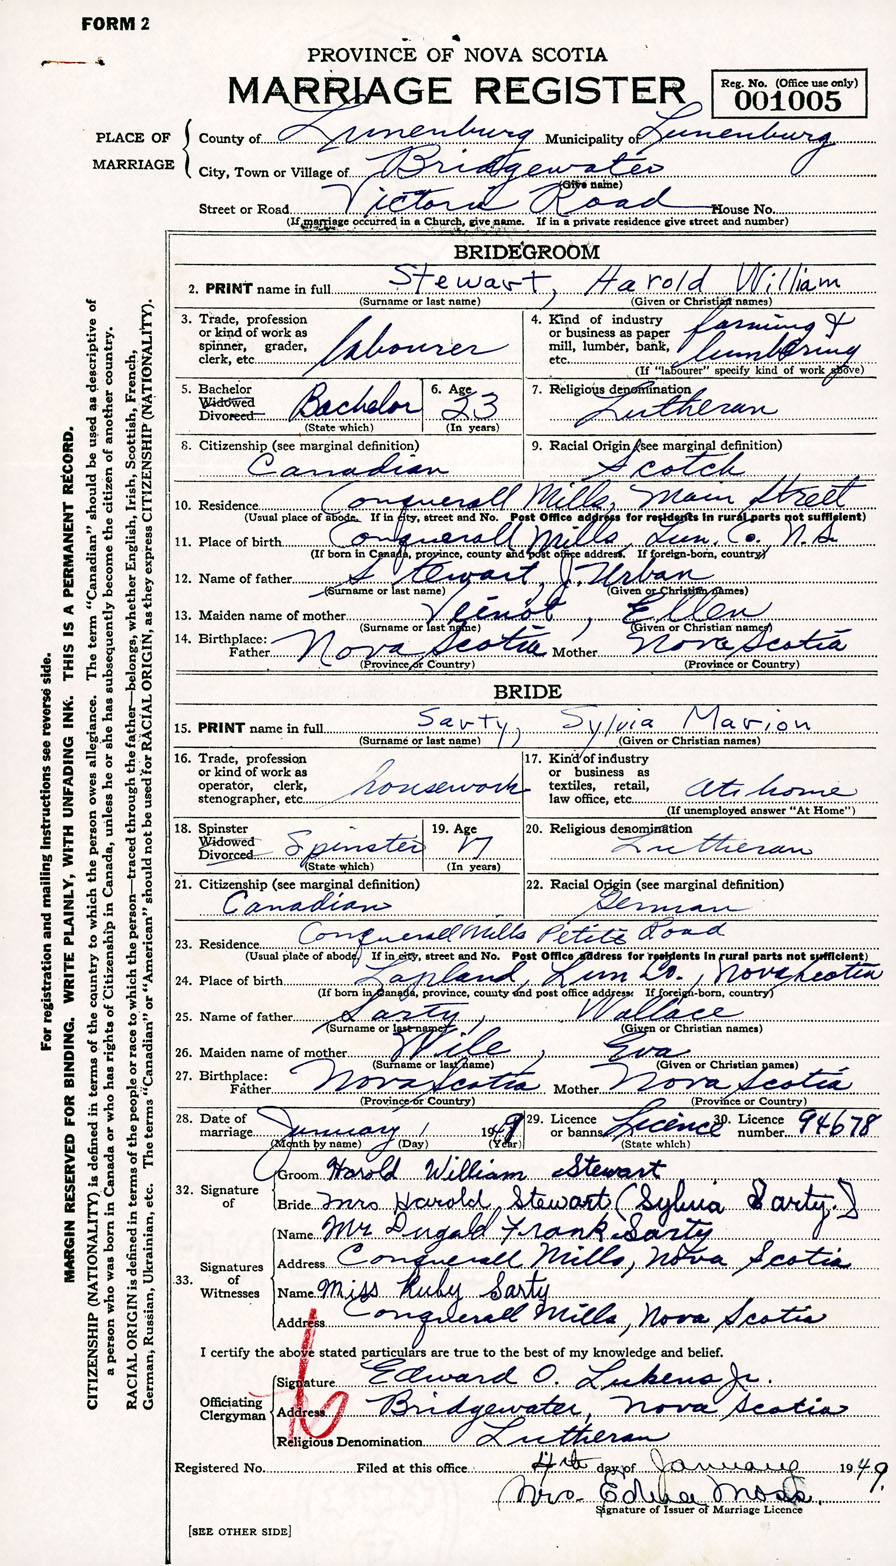 FORM 2
PROVINCE OF NOVA SCOTIA
MARRIAGE REGISTER
Reg. No. (Office use only)
001005
PLACE OF MARRIAGE
County of Lunenburg Municipality of Lunenburg
City, Town or Village of Bridgewater
(Give name)
Street or Road Victoria Road House No.
(If marriage occurred in a Church, give name. If in a private residence give street and number)
BRIDEGROOM
2. PRINT name in full Stewart, Harold William
(Surname or last name) (Given or Christian names)
3. Trade, profession or kind of work as spinner, grader, clerk, etc. labourer
4. Kind of industry or business as paper mill, lumber, bank, etc. farming & lumbering
(If "labourer" specify kind of work above)
5. Bachelor Widowed Divorced Bachelor
(State which)
6. Age 23
(In years)
7. Religious denomination
Lutheran
8. Citizenship (see marginal definition)
Canadian
9. Racial Origin (see marginal definition)
Scotch
10. Residence Conquerall Mills, Main Street
(Usual place of abode. If in city, street and No. Post Office address for residents in rural parts not sufficient)
11. Place of birth Conquerall Mills, Lun. Co. N.S.
(If born in Canada, province, county and post office address. If foreign-born, country)
12. Name of father Stewart, J. Urban
(Surname or last name) (Given or Christian names)
13. Maiden name of mother Veinot, Ellen
(Surname or last name) (Given or Christian names)
14. Birthplace:
Father Nova Scotia Mother Nova Scotia
(Province or Country) (Province or Country)
BRIDE
15. PRINT name in full Sarty, Sylvia Marion
(Surname or last name) (Given or Christian names)
16. Trade, profession or kind of work as operator, clerk, stenographer, etc. housework
17. Kind of industry or business as textiles, retail, law office, etc. At home
(If unemployed answer "At Home")
18. Spinster Widowed Divorced Spinster
(State which)
19. Age 17
(In years)
20. Religious denomination
Lutheran
21. Citizenship (see marginal definition)
Canadian
22. Racial Origin (see marginal definition)
German
23. Residence Conquerall Mills Petite Road
(Usual place of abode. If in city, street and No. Post Office address for residents in rural parts not sufficient)
24. Place of birth Lapland, Lun Co., Nova Scotia
(If born in Canada, province, county and post office address. If foreign-born, country)
25. Name of father Sarty, Wallace
(Surname or last name) (Given or Christian names)
26. Maiden name of mother Wile, Eva
(Surname or last name) (Given or Christian names)
27. Birthplace:
Father Nova Scotia Mother Nova Scotia
(Province or Country) (Province or Country)
28. Date of marriage January 1 1949
(Month by name) (Day) (Year)
29. Licence or banns Licence
(State which)
30. Licence number 94678
32. Signature of
Groom Harold William Stewart
Bride Mrs Harold Stewart (Sylvia Sarty.)
33. Signatures of Witnesses
Name Mr Dugald Frank Sarty
Address Conquerall Mills, Nova Scotia
Name Miss Ruby Sarty
Address Conquerall Mills, Nova Scotia
I certify the above stated particulars are true to the best of my knowledge and belief.
Officiating Clergyman
Signature Edward O. Lukens Jr.
Address Bridgewater, Nova Scotia
Religious Denomination Lutheran
Registered No. Filed at this office 4th day of January 1949.
Mrs. Edna Moss.
Signature of Issuer of Marriage Licence
[SEE OTHER SIDE]
For registration and mailing instructions see reverse side.
MARGIN RESERVED FOR BINDING. WRITE PLAINLY, WITH UNFADING INK. THIS IS A PERMANENT RECORD.
CITIZENSHIP (NATIONALITY) is defined in terms of the country to which the person owes allegiance. The term "Canadian" should be used as descriptive of
a person who was born in Canada or who has rights of Citizenship in Canada, unless he or she has subsequently become the citizen of another country.
RACIAL ORIGIN is defined in terms of the people or race to which the person—traced through the father—belongs, whether English, Irish, Scottish, French,
German, Russian, Ukrainian, etc. The terms "Canadian" or "American" should not be used for RACIAL ORIGIN, as they express CITIZENSHIP (NATIONALITY).